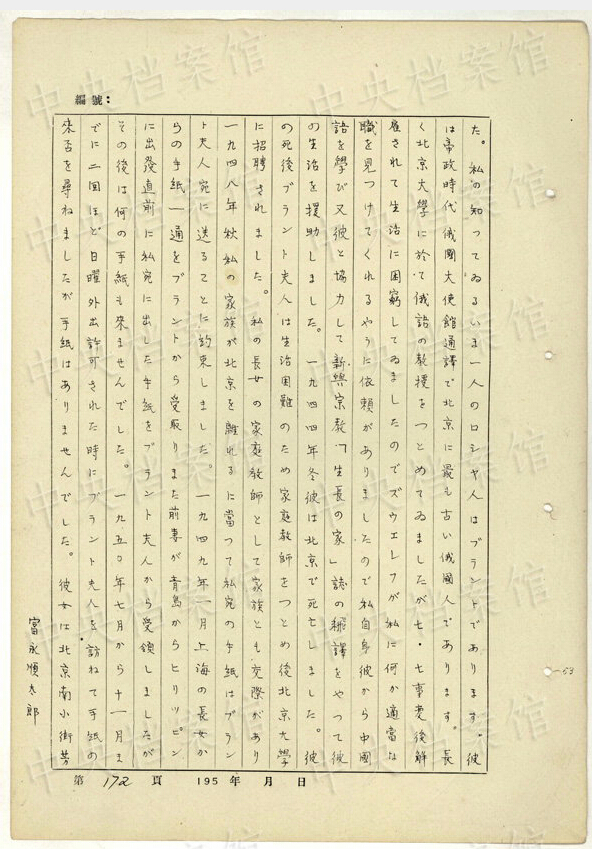 編號：
た。私の知つてゐるいま一人のロシヤ人はブラントであります。彼
は帝政時代俄國大使館通譯で北京に最も古い俄國人であります。長
く北京大學に於て俄語の教授をつとめてゐましたが七・七事変後解
雇されて生活に困窮してゐましたのでズウエレフが私に何か適當な
職を見つけてくれるやうに依頼がありましたので私自身彼から中國
語を學び又彼と協力して新興宗教「生長の家」誌の飜譯をやつて彼
の生活を援助しました。一九四四年冬彼は北京で死亡しました。彼
の死後ブラント夫人は生活困難のため家庭教師をつとめ後北京大學
に招聘されました。私の長女の家庭教師として家族とも交際があり
一九四八年秋私の家族が北京を離れるに當つて私宛の手紙はブラン
ト夫人宛に送ることに約束しました。一九四九年一月上海の長女か
らの手紙一通をブラントから受取りまた前妻が青島からヒリツピン
に出發直前に私宛に出した手紙をブラント夫人から受領しましたが
その後は何の手紙も來ませんでした。一九五〇年七月から十一月ま
でに二回ほど日曜外出許可された時にブラント夫人を訪ねて手紙の
來否を尋ねましたが手紙はありませんでした。彼女は北京南小街芳
富永順太郎
第 172 頁 195 年 月 日
53
中央档案馆